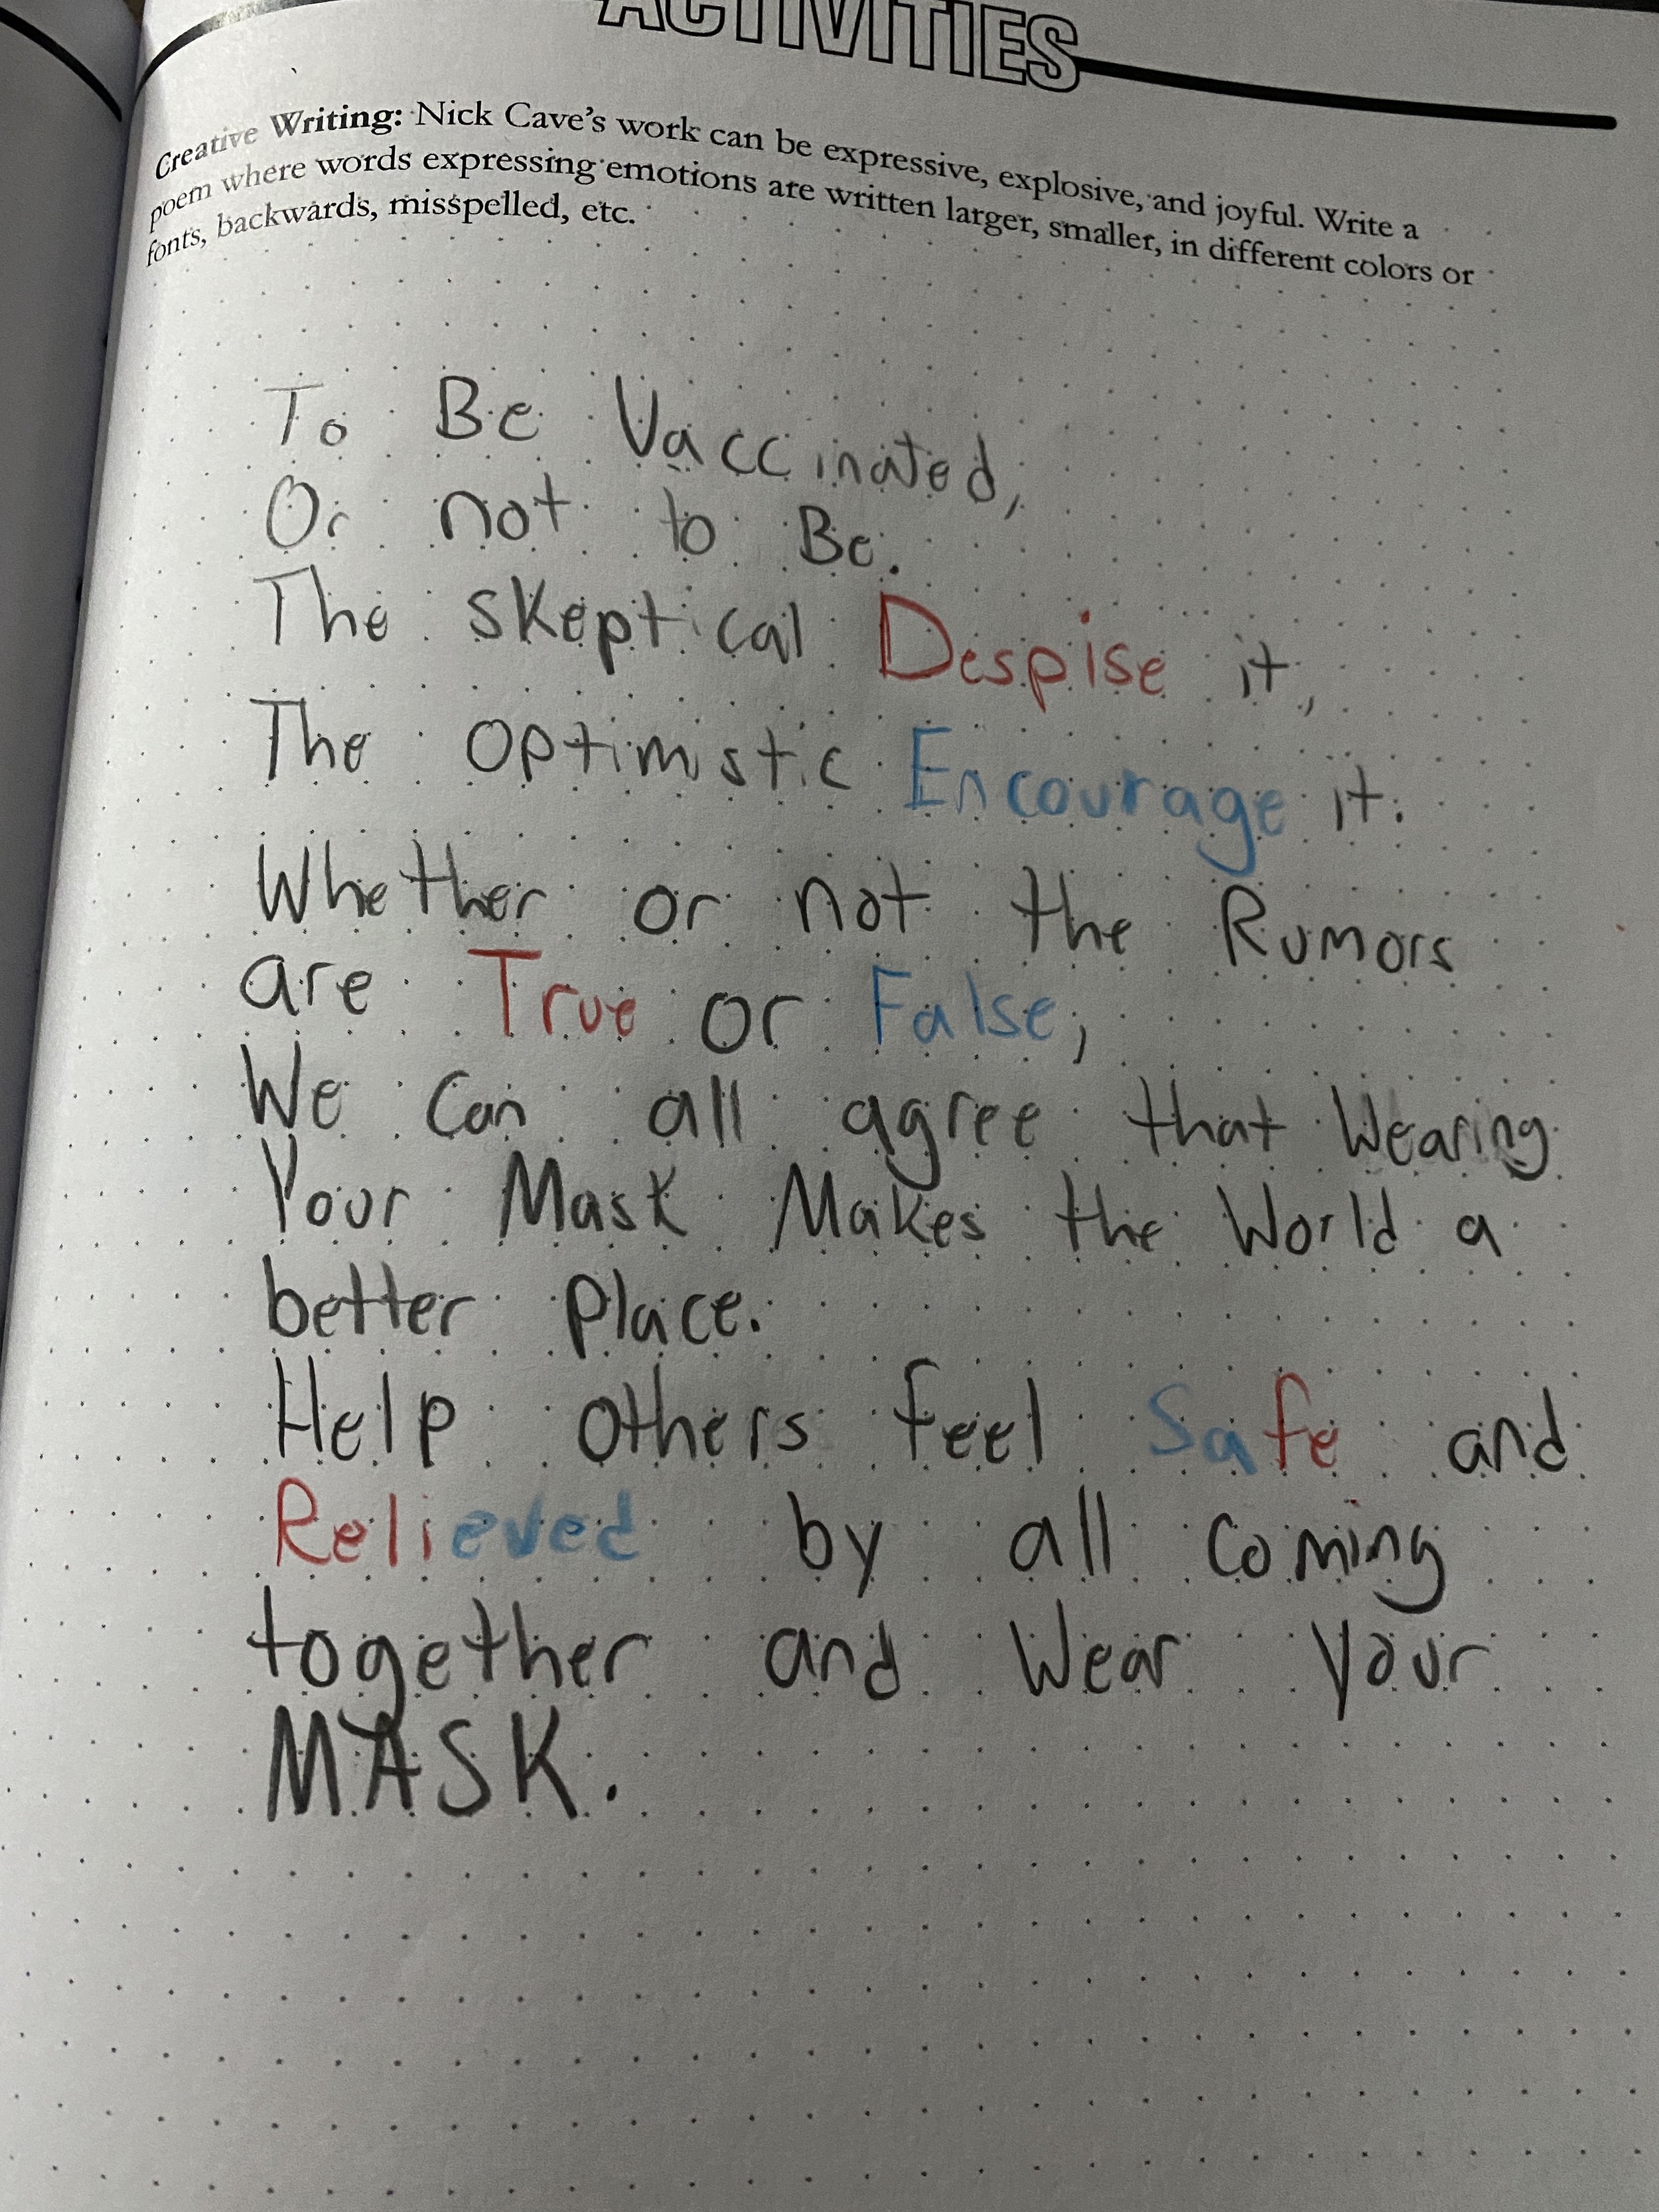 ACTIVITIES
Creative Writing: Nick Cave's work can be expressive, explosive, and joyful. Write a
poem where words expressing emotions are written larger, smaller, in different colors or
fonts, backwards, misspelled, etc.
To Be Vaccinated,
Or not to Be.
The skeptical Despise it,
The Optimistic Encourage it.
Whether or not the Rumors
are True or False,
We Can all agree that Wearing
Your Mask Makes the World a
better Place.
Help others feel Safe and
Relieved by all coming
together and Wear Your
MASK.